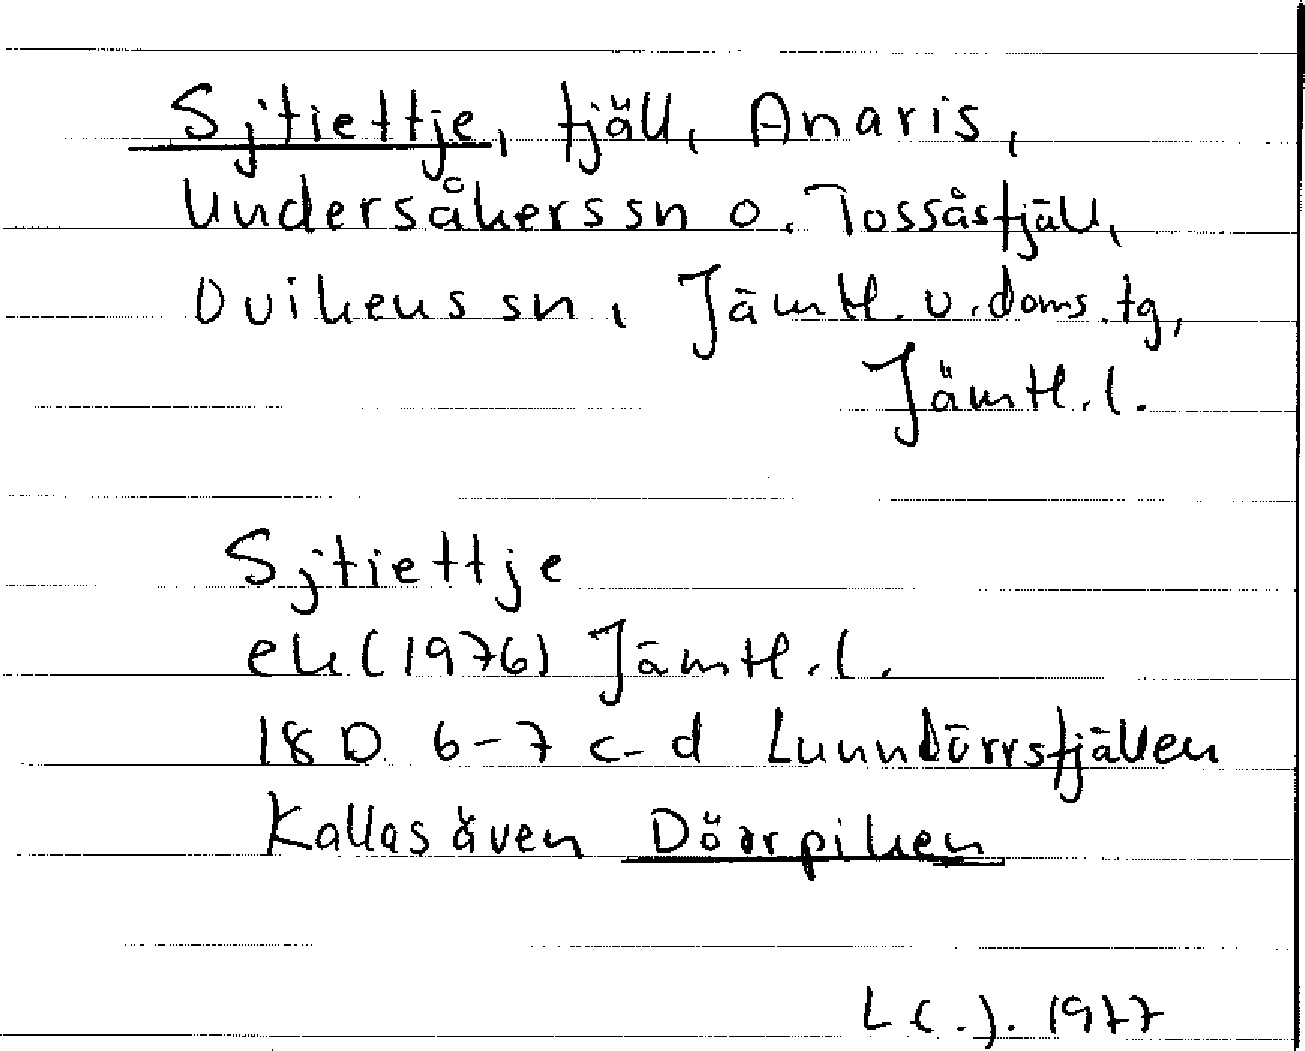 Sjtiettje, fjäll, Anaris,
Undersåkers sn o. Tossåsfjäll,
Ovikens sn, Jämtl. v. doms. tg,
Jämtl. l.
Sjtiettje
ek (1976) Jämtl. l.
18 D 6-7 c-d Lunndörrsfjällen
Kallas även Dörrpiken
L C. J. 1977